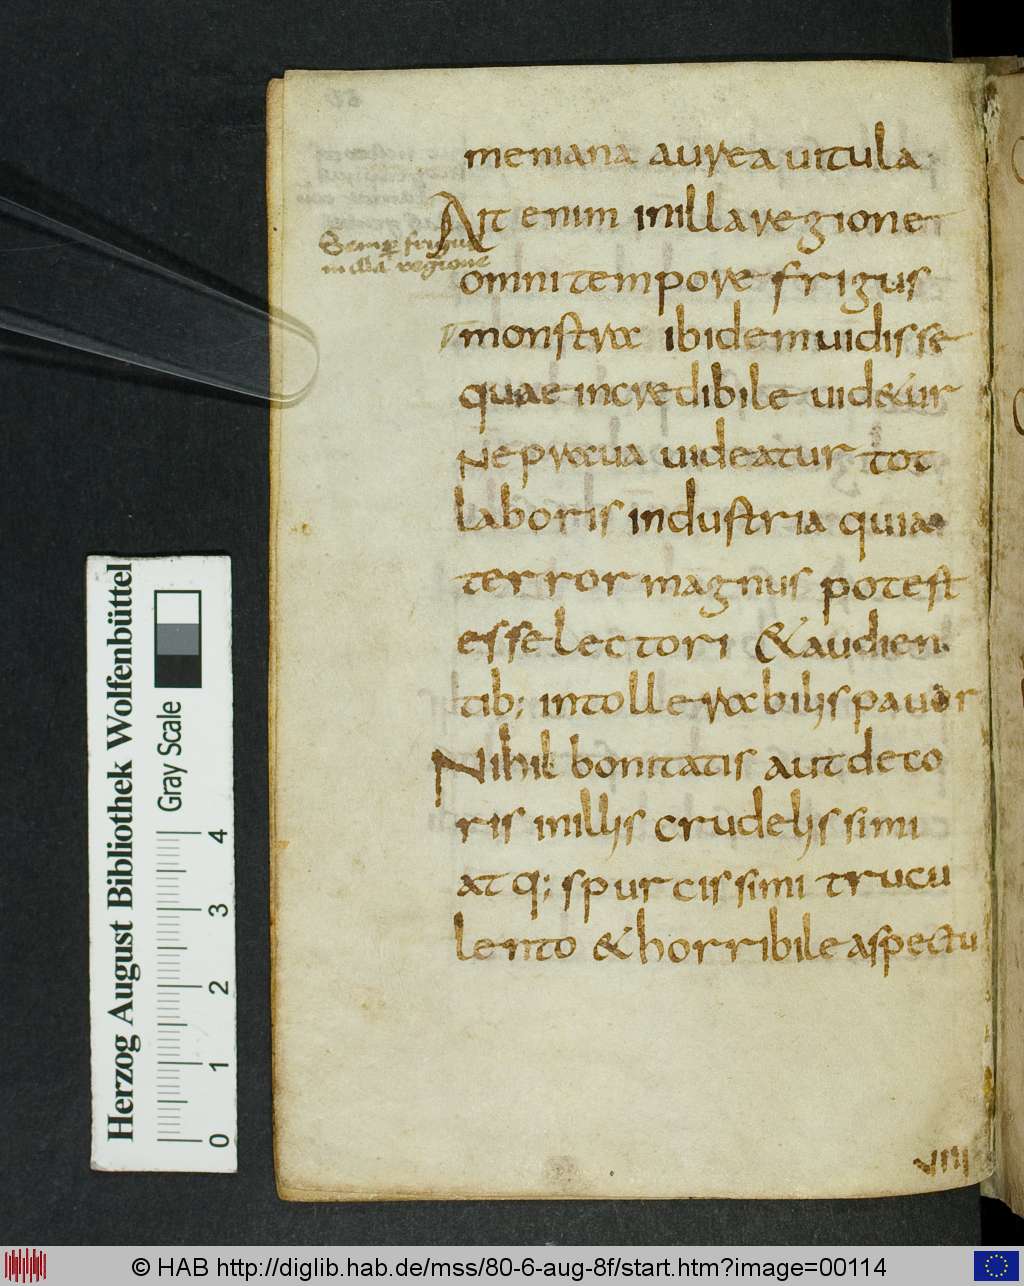 meniana aurea uitula
Ait enim in illa regione
Semp frigus
in illa regione
omni tempore frigus
monstra ibidem uidisse
quae incredibile uidetur
Ne praua uideatur tot
laboris industria quia
terror magnus potest
esse lectori & audien
tib; intollerabilis pauor
Nihil bonitatis aut deco
ris in illis crudelissimi
atq; spurcissimi trucu
lento & horribile aspectu
VIIII
Herzog August Bibliothek Wolfenbüttel
Gray Scale
0 1 2 3 4
© HAB http://diglib.hab.de/mss/80-6-aug-8f/start.htm?image=00114